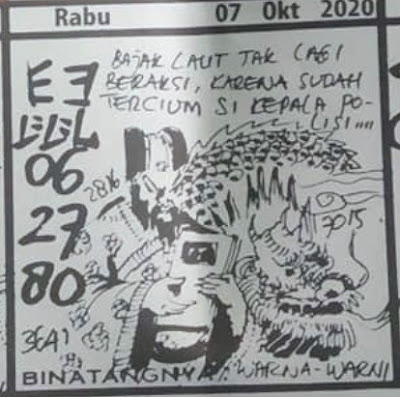 Rabu 07 Okt 2020
BAJAK LAUT TAK LAGI
BERAKSI, KARENA SUDAH
TERCIUM SI KEPALA PO-
LISI....
06
27
80
2816
3015
BINATANGNYA: WARNA-WARNI